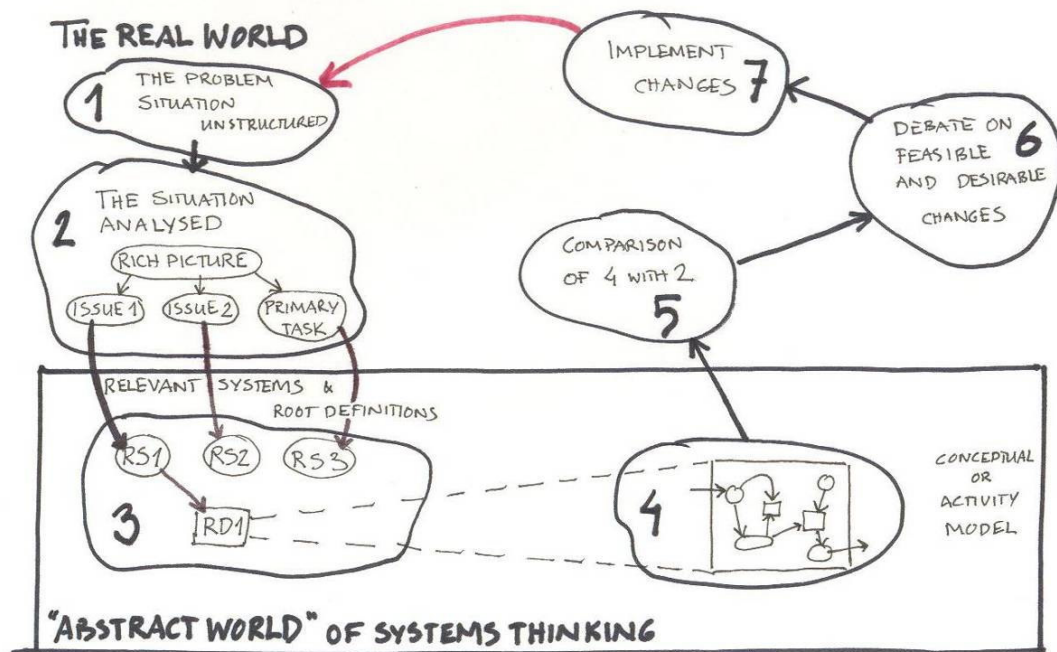 THE REAL WORLD
1
THE PROBLEM
SITUATION
UNSTRUCTURED
2
THE SITUATION
ANALYSED
RICH PICTURE
ISSUE 1
ISSUE 2
PRIMARY
TASK
RELEVANT SYSTEMS &
ROOT DEFINITIONS
3
RS1
RS2
RS3
RD1
4
CONCEPTUAL
OR
ACTIVITY
MODEL
COMPARISON
OF 4 WITH 2
5
DEBATE ON
FEASIBLE
AND DESIRABLE
CHANGES
6
IMPLEMENT
CHANGES
7
"ABSTRACT WORLD" OF SYSTEMS THINKING